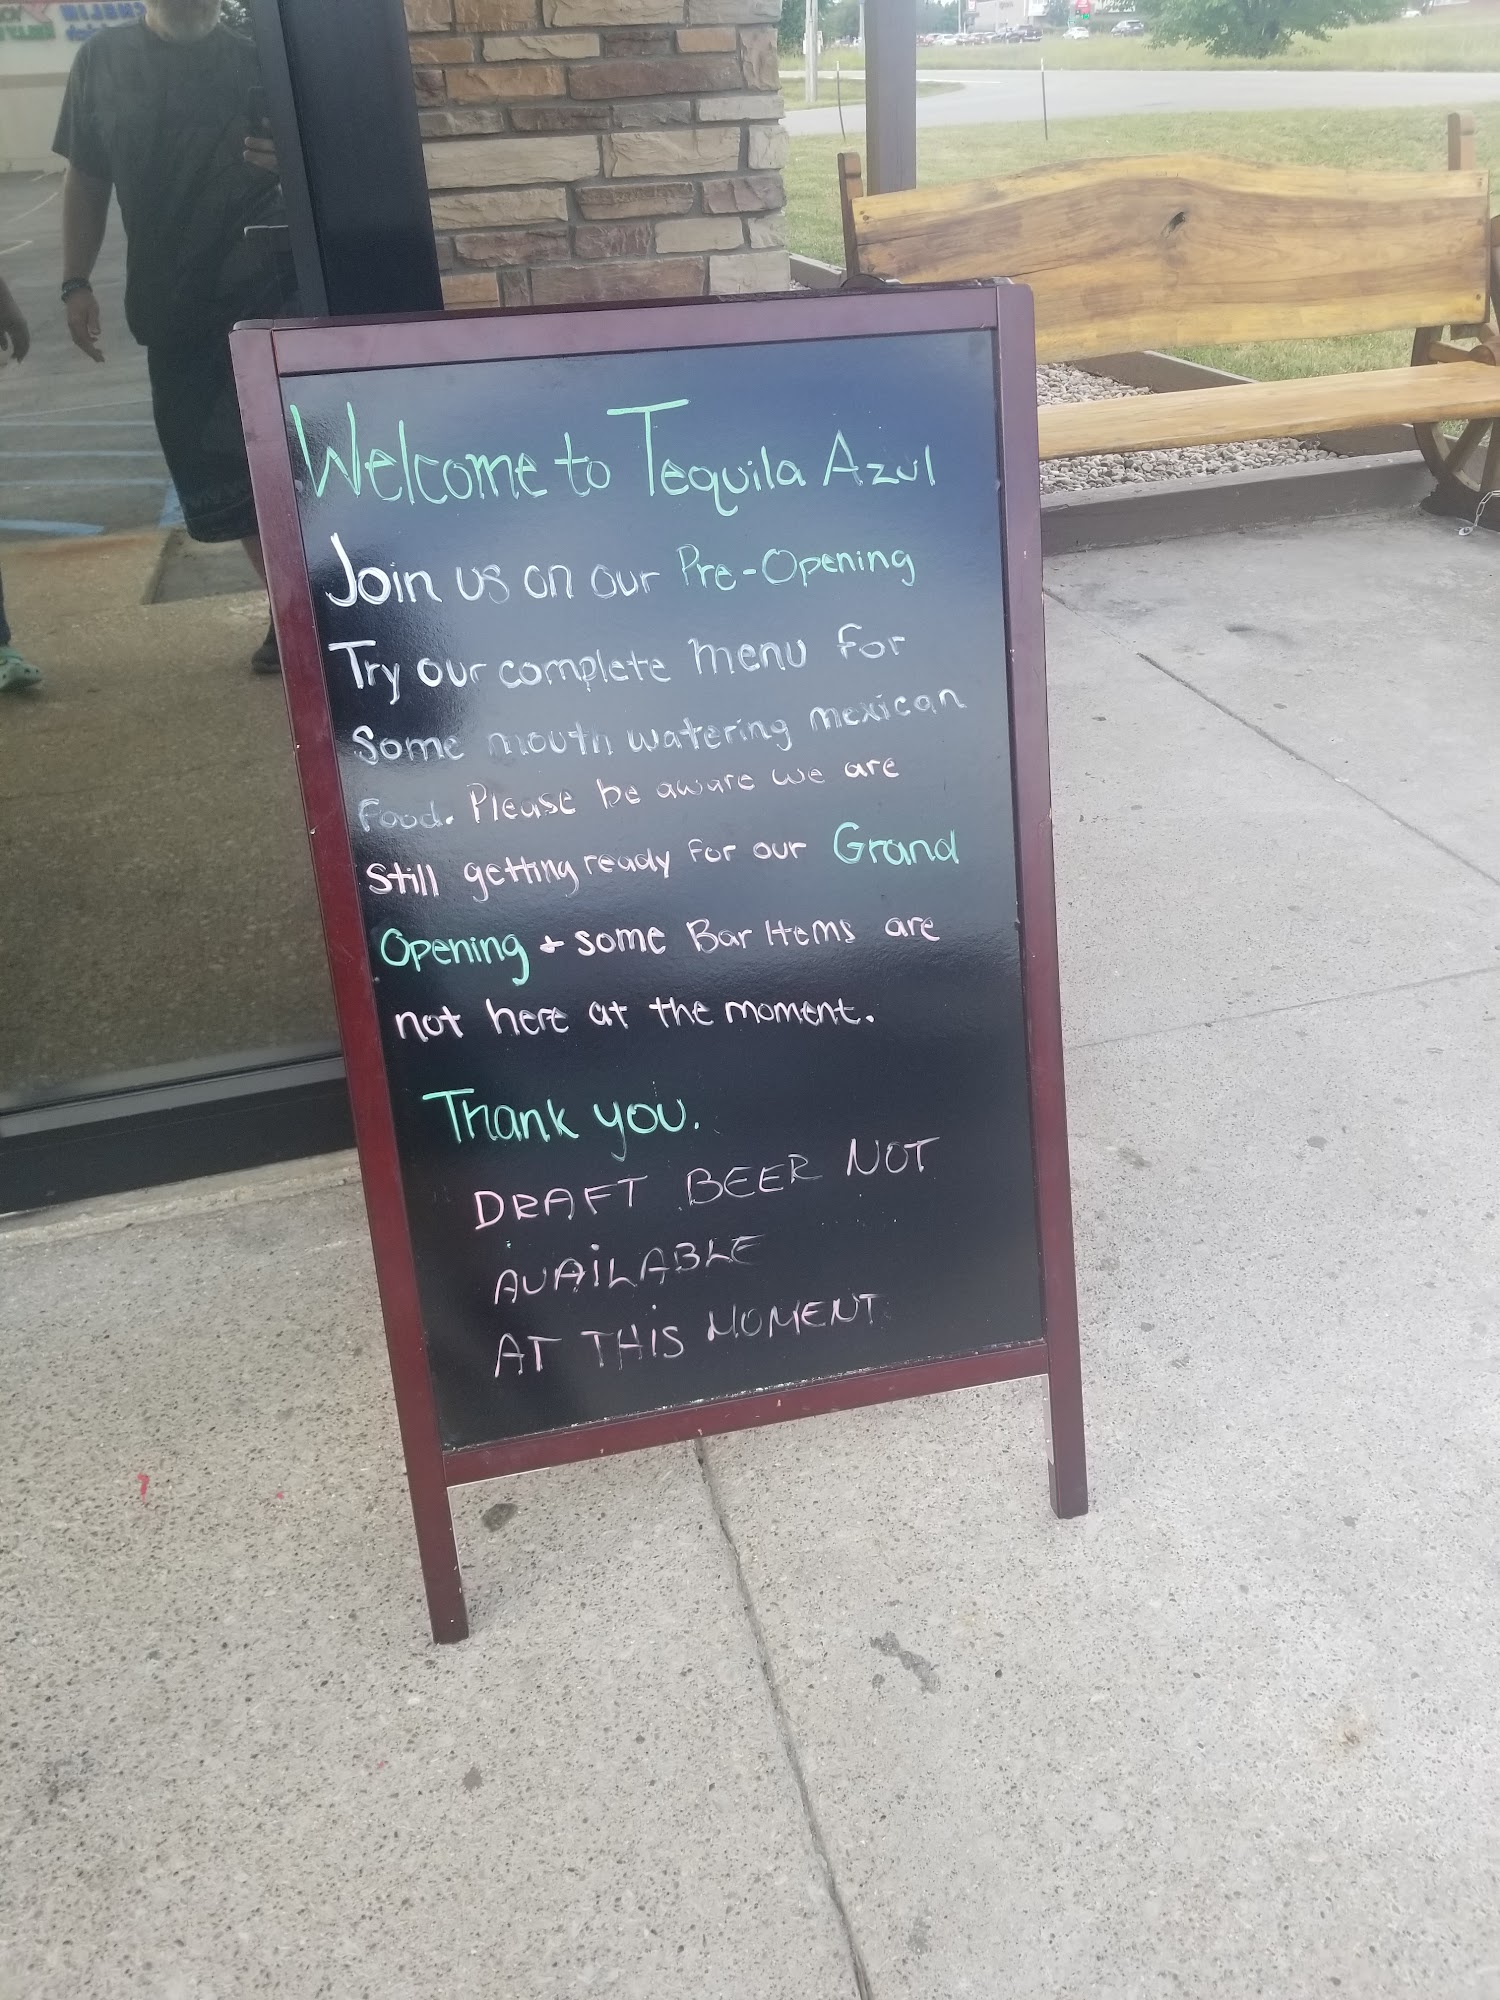 Welcome to Tequila Azul
Join us on our Pre-Opening
Try our complete menu for
Some mouth watering mexican
Food. Please be aware we are
Still getting ready for our Grand
Opening + some Bar Items are
not here at the moment.
Thank you.
DRAFT BEER NOT
AVAiLABLE
AT THiS MOMENT